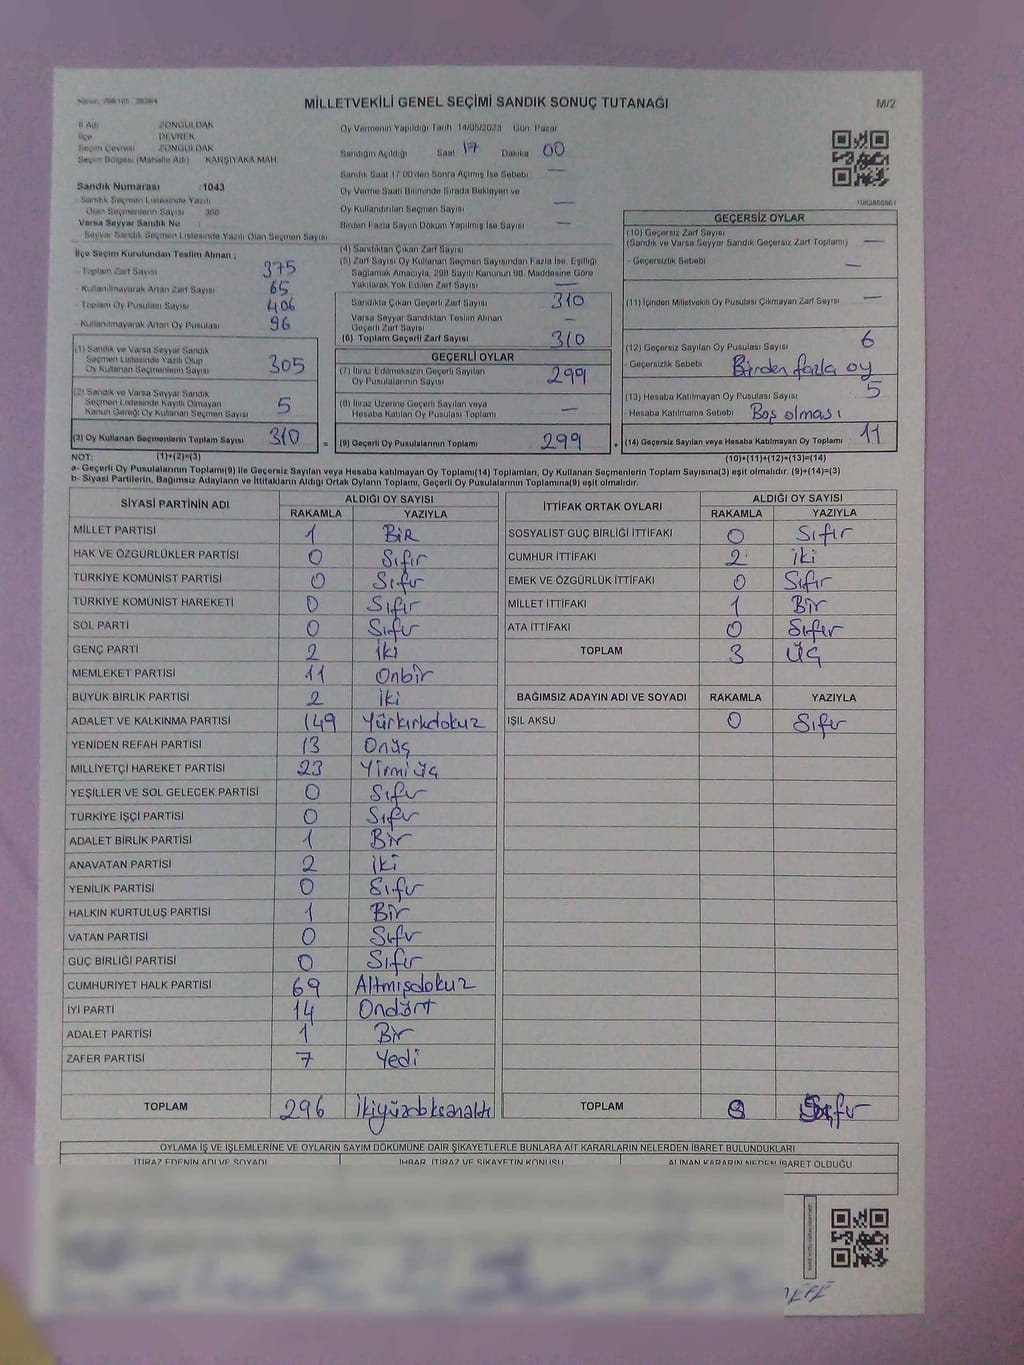 MİLLETVEKİLİ GENEL SEÇİMİ SANDIK SONUÇ TUTANAĞI
M/2
İl Adı ZONGULDAK
İlçe DEVREK
Seçim Çevresi ZONGULDAK
Seçim Bölgesi (Mahalle Adı) KARŞIYAKA MAH.
Sandık Numarası :1043
Sandık Seçmen Listesinde Yazılı
Olan Seçmenlerin Sayısı
Varsa Seyyar Sandık No
Seyyar Sandık Seçmen Listesinde Yazılı Olan Seçmen Sayısı
Oy Vermenin Yapıldığı Tarih 14/05/2023 Gün Pazar
Sandığın Açıldığı Saat 17 Dakika 00
Sandık Saat 17:00'den Sonra Açılmış İse Sebebi —
Oy Verme Saati Bitiminde Sırada Bekleyen ve
Oy Kullandırılan Seçmen Sayısı —
Birden Fazla Sayım Döküm Yapılmış İse Sayısı —
İlçe Seçim Kurulundan Teslim Alınan ;
- Toplam Zarf Sayısı 375
- Kullanılmayarak Artan Zarf Sayısı 65
- Toplam Oy Pusulası Sayısı 406
- Kullanılmayarak Artan Oy Pusulası 96
(1) Sandık ve Varsa Seyyar Sandık
Seçmen Listesinde Yazılı Olup
Oy Kullanan Seçmenlerin Sayısı 305
(2) Sandık ve Varsa Seyyar Sandık
Seçmen Listesinde Kayıtlı Olmayan
Kanun Gereği Oy Kullanan Seçmen Sayısı 5
(3) Oy Kullanan Seçmenlerin Toplam Sayısı 310
(4) Sandıktan Çıkan Zarf Sayısı
(5) Zarf Sayısı Oy Kullanan Seçmen Sayısından Fazla İse, Eşitliği
Sağlamak Amacıyla, 298 Sayılı Kanunun 98. Maddesine Göre
Yakılarak Yok Edilen Zarf Sayısı —
Sandıkta Çıkan Geçerli Zarf Sayısı 310
Varsa Seyyar Sandıktan Teslim Alınan
Geçerli Zarf Sayısı —
(6) Toplam Geçerli Zarf Sayısı 310
GEÇERLİ OYLAR
(7) İtiraz Edilmeksizin Geçerli Sayılan
Oy Pusulalarının Sayısı 299
(8) İtiraz Üzerine Geçerli Sayılan veya
Hesaba Katılan Oy Pusulası Toplamı —
= (9) Geçerli Oy Pusulalarının Toplamı 299
GEÇERSİZ OYLAR
(10) Geçersiz Zarf Sayısı
(Sandık ve Varsa Seyyar Sandık Geçersiz Zarf Toplamı) —
- Geçersizlik Sebebi —
(11) İçinden Milletvekili Oy Pusulası Çıkmayan Zarf Sayısı —
(12) Geçersiz Sayılan Oy Pusulası Sayısı 6
- Geçersizlik Sebebi Birden fazla oy
(13) Hesaba Katılmayan Oy Pusulası Sayısı 5
Hesaba Katılmama Sebebi Boş olması
+ (14) Geçersiz Sayılan veya Hesaba Katılmayan Oy Toplamı 11
NOT: (1)+(2)=(3) (10)+(11)+(12)+(13)=(14)
a- Geçerli Oy Pusulalarının Toplamı(9) ile Geçersiz Sayılan veya Hesaba katılmayan Oy Toplamı(14) Toplamları, Oy Kullanan Seçmenlerin Toplam Sayısına(3) eşit olmalıdır. (9)+(14)=(3)
b- Siyasi Partilerin, Bağımsız Adayların ve İttifakların Aldığı Ortak Oyların Toplamı, Geçerli Oy Pusulalarının Toplamına(9) eşit olmalıdır.
SİYASİ PARTİNİN ADI ALDIĞI OY SAYISI
RAKAMLA YAZIYLA
MİLLET PARTİSİ 1 BİR
HAK VE ÖZGÜRLÜKLER PARTİSİ 0 Sıfır
TÜRKİYE KOMÜNİST PARTİSİ 0 Sıfır
TÜRKİYE KOMÜNİST HAREKETİ 0 Sıfır
SOL PARTİ 0 Sıfır
GENÇ PARTİ 2 İki
MEMLEKET PARTİSİ 11 Onbir
BÜYÜK BİRLİK PARTİSİ 2 İki
ADALET VE KALKINMA PARTİSİ 149 Yüzkırkdokuz
YENİDEN REFAH PARTİSİ 13 Onüç
MİLLİYETÇİ HAREKET PARTİSİ 23 Yirmiüç
YEŞİLLER VE SOL GELECEK PARTİSİ 0 Sıfır
TÜRKİYE İŞÇİ PARTİSİ 0 Sıfır
ADALET BİRLİK PARTİSİ 1 Bir
ANAVATAN PARTİSİ 2 İki
YENİLİK PARTİSİ 0 Sıfır
HALKIN KURTULUŞ PARTİSİ 1 Bir
VATAN PARTİSİ 0 Sıfır
GÜÇ BİRLİĞİ PARTİSİ 0 Sıfır
CUMHURİYET HALK PARTİSİ 69 Altmışdokuz
İYİ PARTİ 14 Ondört
ADALET PARTİSİ 1 Bir
ZAFER PARTİSİ 7 Yedi
TOPLAM 296 İkiyüzdoksanaltı
İTTİFAK ORTAK OYLARI ALDIĞI OY SAYISI
RAKAMLA YAZIYLA
SOSYALİST GÜÇ BİRLİĞİ İTTİFAKI 0 Sıfır
CUMHUR İTTİFAKI 2 İki
EMEK VE ÖZGÜRLÜK İTTİFAKI 0 Sıfır
MİLLET İTTİFAKI 1 Bir
ATA İTTİFAKI 0 Sıfır
TOPLAM 3 Üç
BAĞIMSIZ ADAYIN ADI VE SOYADI RAKAMLA YAZIYLA
IŞIL AKSU 0 Sıfır
TOPLAM Sıfır
OYLAMA İŞ VE İŞLEMLERİNE VE OYLARIN SAYIM DÖKÜMÜNE DAİR ŞİKAYETLERLE BUNLARA AİT KARARLARIN NELERDEN İBARET BULUNDUKLARI
İTİRAZ EDENİN ADI VE SOYADI İHBAR, İTİRAZ VE ŞİKAYETİN KONUSU ALINAN KARARIN NEDEN İBARET OLDUĞU